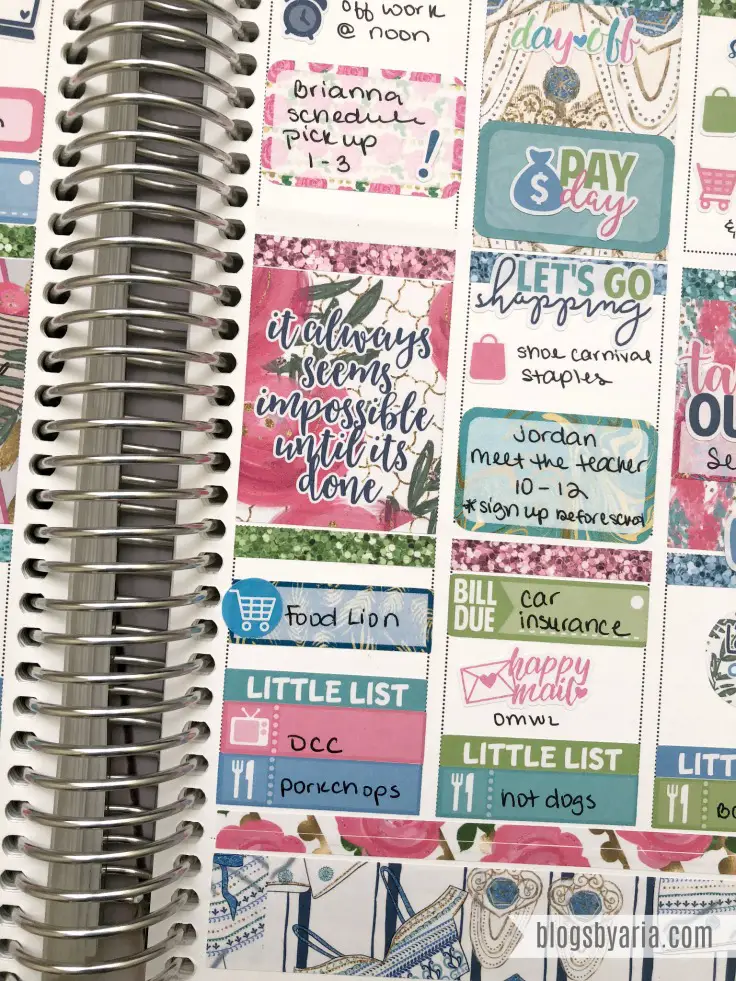 off work
@ noon
Brianna
schedule
pick up
1-3
it always
seems
impossible
until its
done
Food Lion
LITTLE LIST
DCC
porkchops
day off
PAY
day
$
LET'S GO
shopping
shoe carnival
staples
Jordan
meet the teacher
10-12
*sign up before school
BILL
DUE
car
insurance
happy
mail
omwl
LITTLE LIST
hot dogs
OU
Se
LITT
blogsbyaria.com